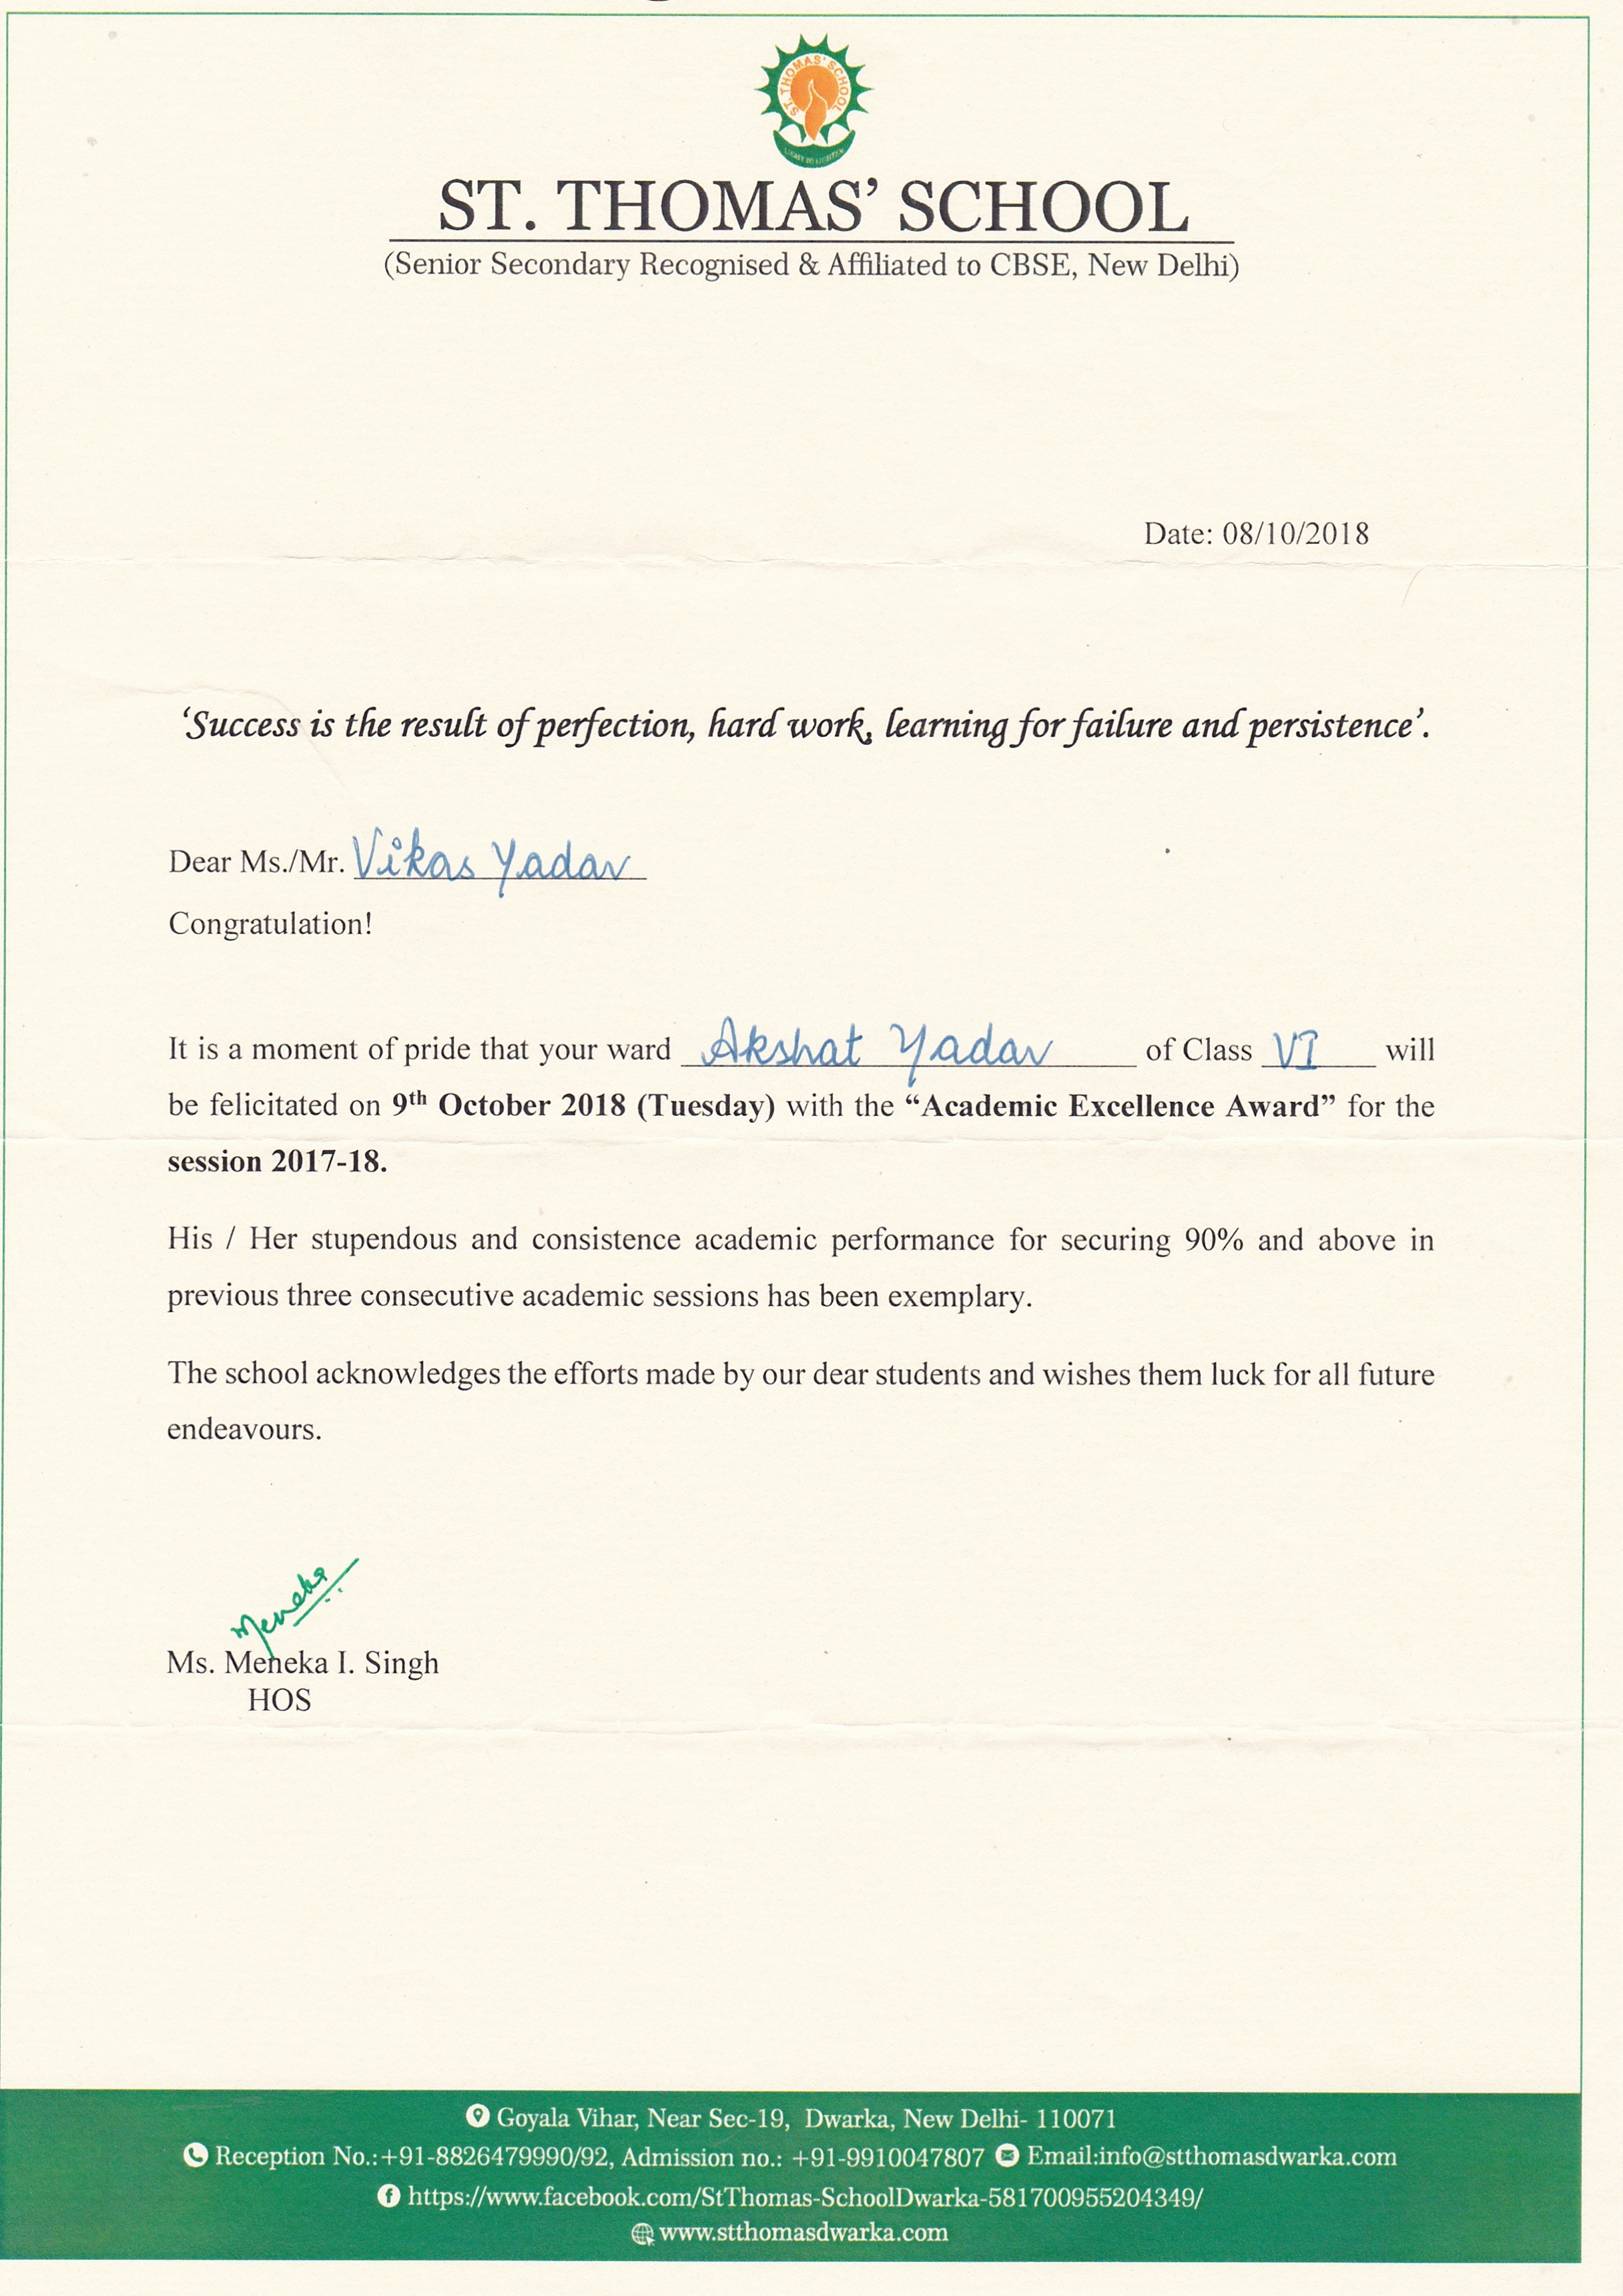 ST. THOMAS' SCHOOL
LIGHT TO LIGHTEN
ST. THOMAS’ SCHOOL
(Senior Secondary Recognised & Affiliated to CBSE, New Delhi)
Date: 08/10/2018
‘Success is the result of perfection, hard work, learning for failure and persistence’.
Dear Ms./Mr. Vikas Yadav
Congratulation!
It is a moment of pride that your ward Akshat Yadav of Class VI will
be felicitated on 9th October 2018 (Tuesday) with the “Academic Excellence Award” for the
session 2017-18.
His / Her stupendous and consistence academic performance for securing 90% and above in
previous three consecutive academic sessions has been exemplary.
The school acknowledges the efforts made by our dear students and wishes them luck for all future
endeavours.
Meneka
Ms. Meneka I. Singh
HOS
Goyala Vihar, Near Sec-19, Dwarka, New Delhi- 110071
Reception No.:+91-8826479990/92, Admission no.: +91-9910047807 Email:info@stthomasdwarka.com
https://www.facebook.com/StThomas-SchoolDwarka-581700955204349/
www.stthomasdwarka.com